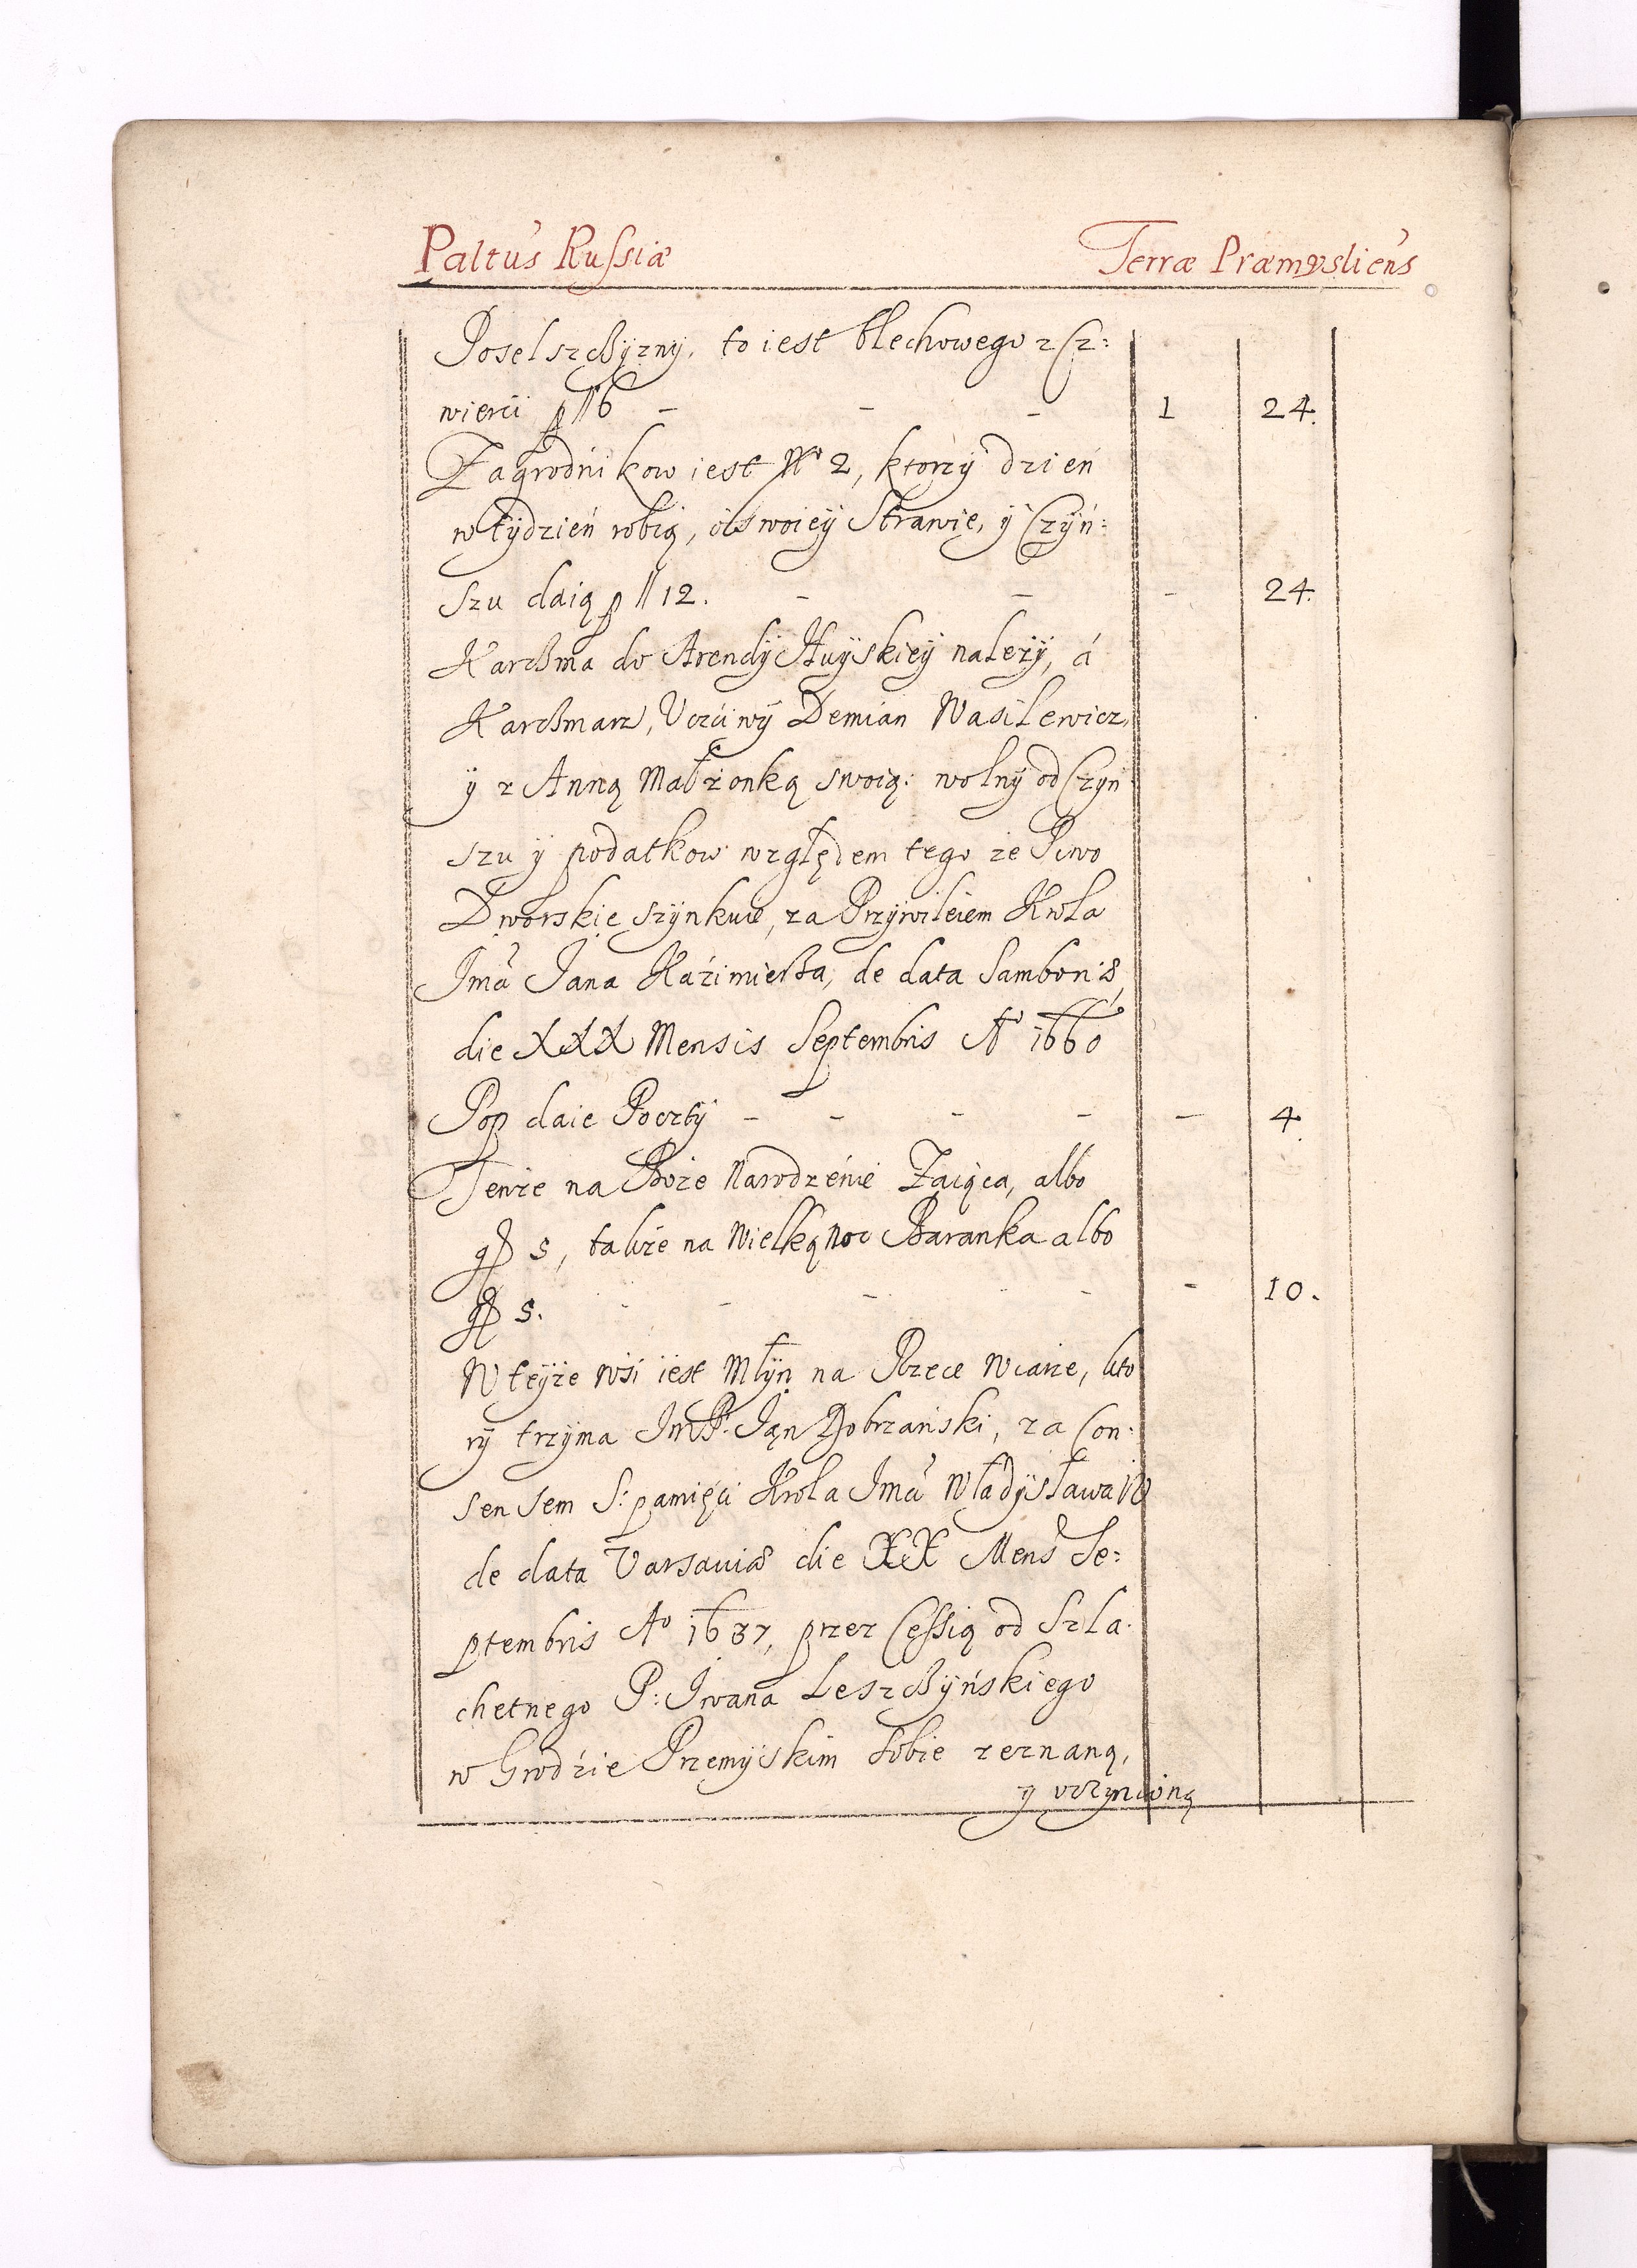 Paltus Russiæ Terræ Præmysliens
Poselszczyzny, to iest blechowego z Cz:
wierci p // 6 - - - 1 24.
Zagrodnikow iest No 2, ktorzy dzień
w tydzień robią, o swoiey Strawie, y Czyn:
szu daią p // 12. - - - 24.
Karczma do Arendy Huyskiey nalezy, á
Karczmarz, Uczciwy Demian Wasilewicz,
y z Anną Małżonką swoią: wolny od Czyn
szu y podatkow względem tego ze Piwo
Dworskie szynkuie, za Przywileiem Krola
Imći Jana Kaźimierza, de data Samboriæ,
die XXX Mensis Septembris Ao 1660
Pop daie Poczty - - - - - 4.
Tenze na Boże Narodzenie Zaiąca, albo
g 5, takze na Wielkąnoc Baranka albo
g 5. - - - - - 10.
W teyże wśi iest Młyn na Rzece Wiarze, kto
ry trzyma Im P. Jan Dobrzański, za Con:
sensem S: pamięci Krola Imći Władysława IV
de data Varsaviæ die XX Mens Se:
ptembris Ao 1637, przez Cessią od Szla:
chetnego P: Iwana Leszczyńskiego
w Grodzie Przemyskim sobie zeznaną,
y uczynioną